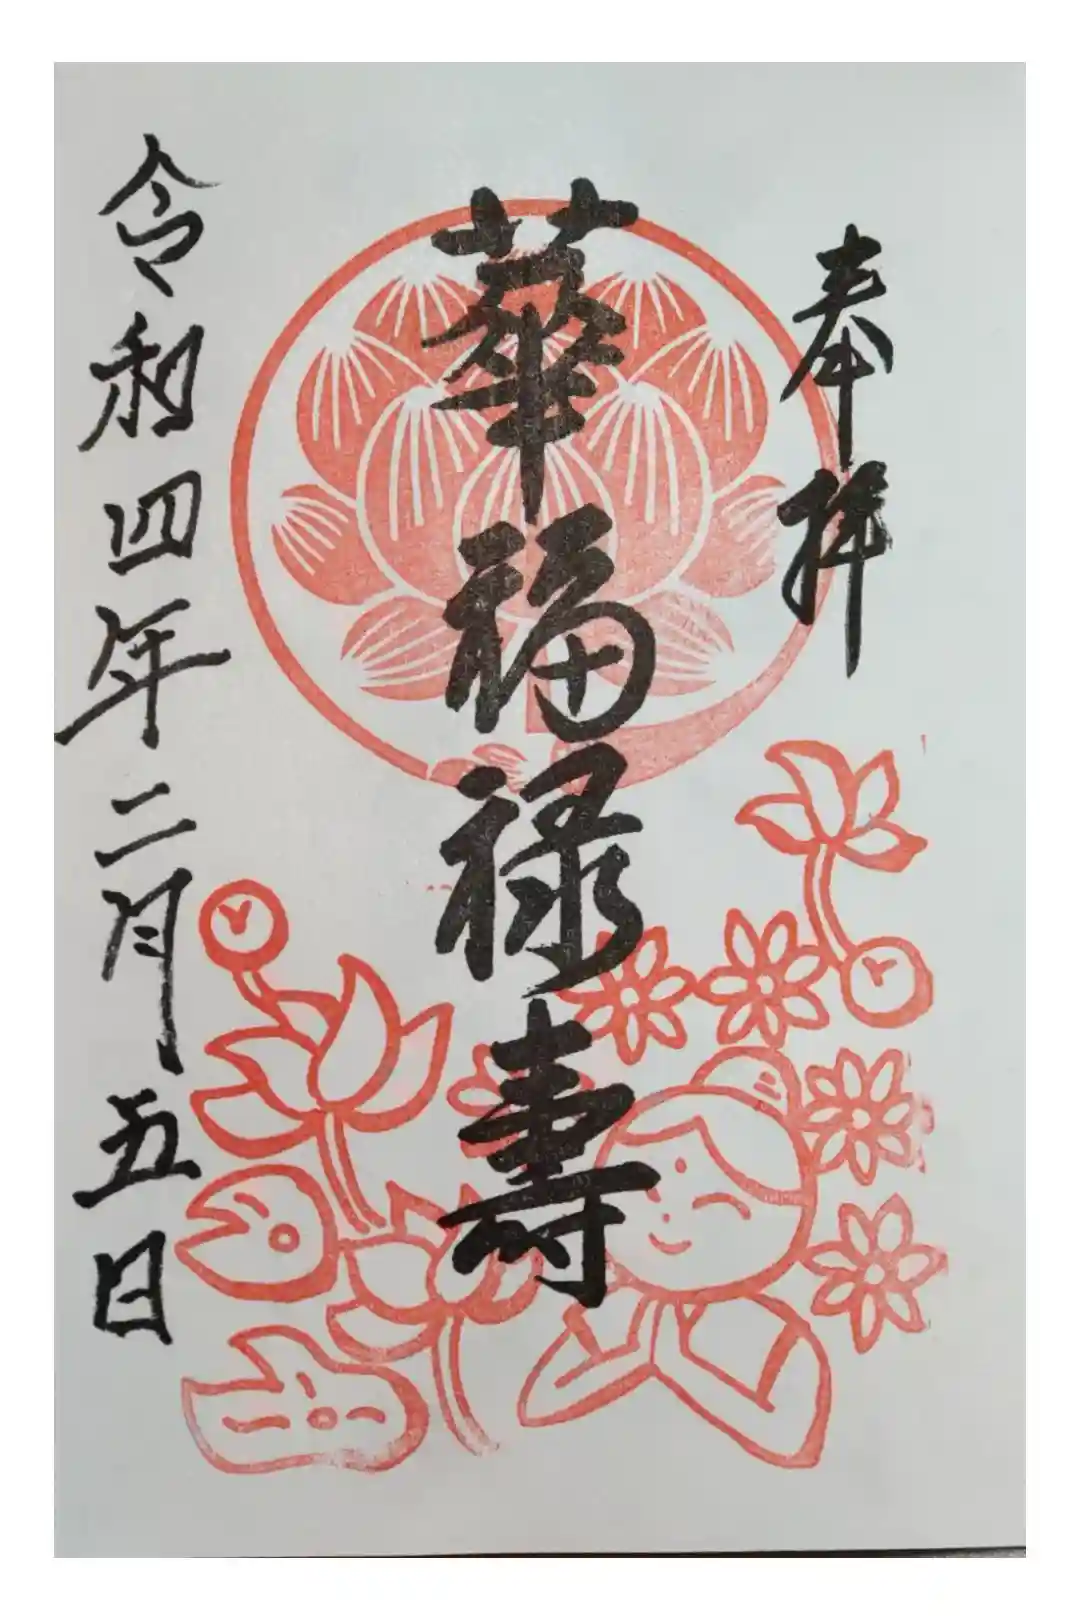 奉拝
華福禄寿
令和四年二月五日